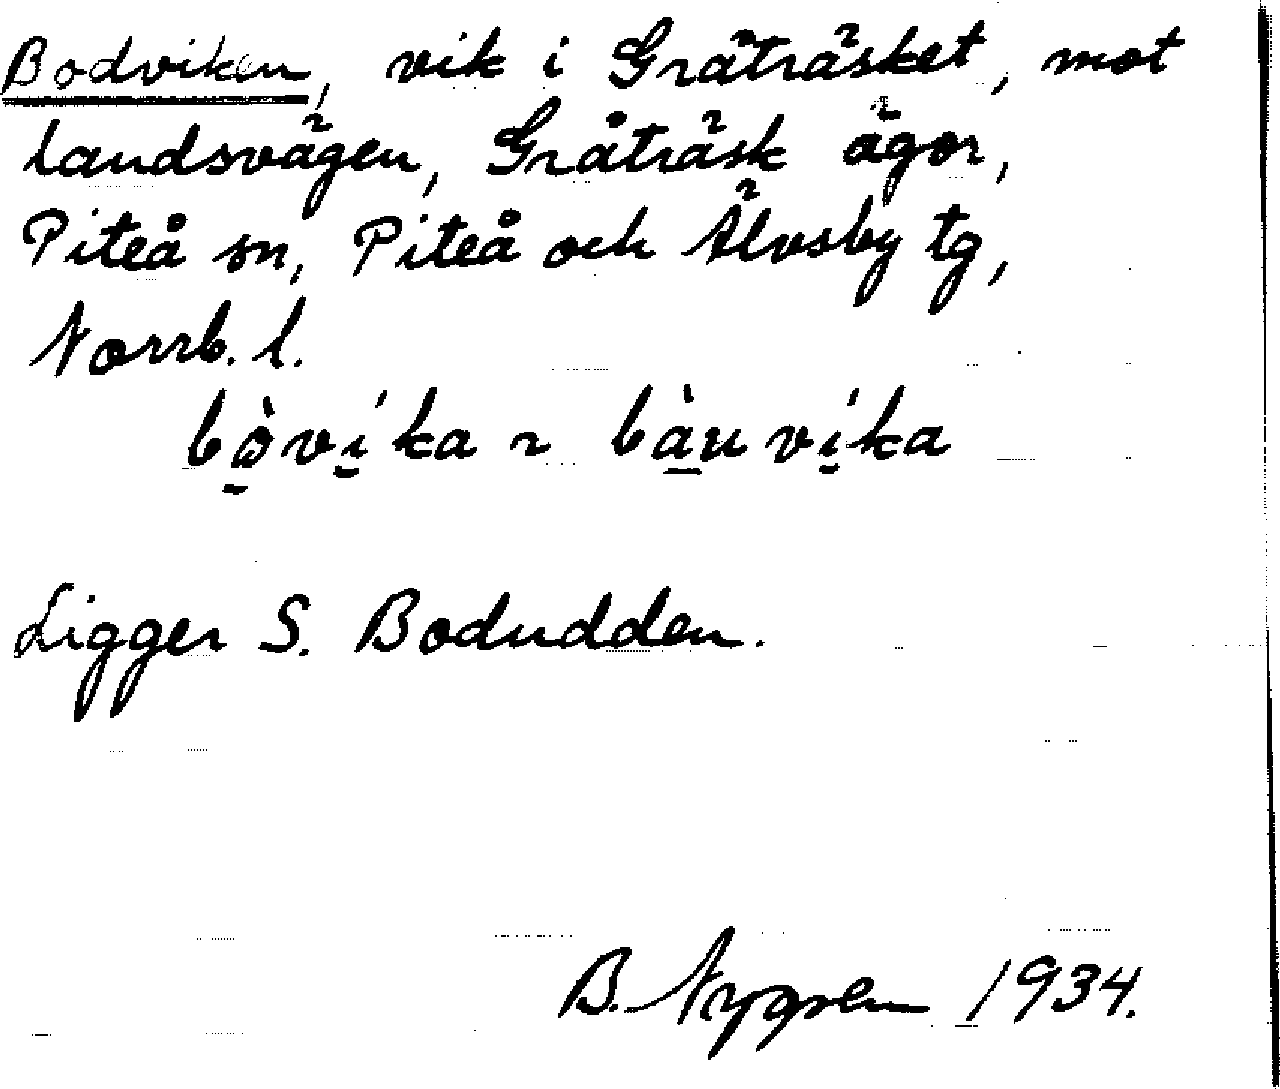 Bodviken, vik i Gråträsket, mot
landsvägen, Gråträsk ägor,
Piteå sn, Piteå och Älvsby tg,
Norrb. l.
bò̱ví̱ka ~ bàu̱ví̱ka
Ligger S. Bodudden.
B. Nygren 1934.